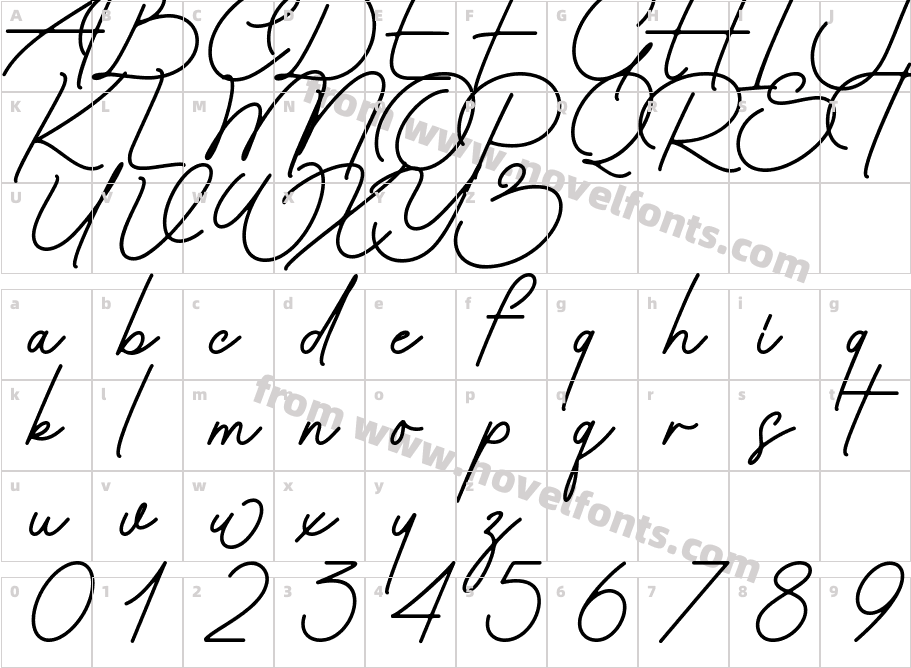 A B C D E F G H I J
A B C D E F G H I J
K L M N O P Q R S T
K L M N O P Q R S T
from www.novelfonts.com
U V W X Y Z
U V W X Y Z
a b c d e f g h i g
a b c d e f g h i g
k l m n o p q r s t
k l m n o p q r s t
from www.novelfonts.com
u v w x y z
u v w x y z
0 1 2 3 4 5 6 7 8 9
0 1 2 3 4 5 6 7 8 9